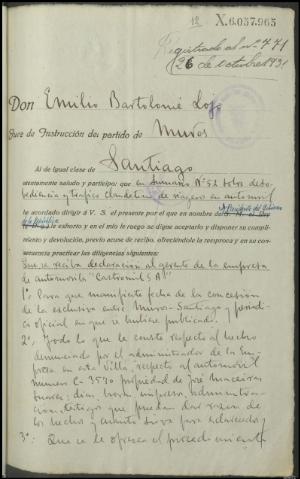 12 X.6.057.965
Registrado al nº 771
26 de octubre 1931
Don Emilio Bartolomé
Juez de Instrucción del partido de Muros
Al de igual clase de Santiago
atentamente saludo y participo: que en sumario Nº 52 sobre deso-
bediencia y tráfico clandestino de viajeros en automóvil
he acordado dirigir a V. S. el presente por el que en nombre de
le exhorto y en el mío le ruego se digne aceptarlo y disponer su cumpli-
miento y devolución, previo acuse de recibo, ofreciéndole la recíproca y en su con-
secuencia practicar las diligencias siguientes:
Que se reciba declaración al gerente de la empresa
de automóviles "Castromil S.A"
1º Para que manifieste fecha de la concesión
de la exclusiva entre Muros-Santiago y perió-
dico oficial en que se hubiese publicado.
2º Todo lo que le conste respecto al hecho
denunciado por el administrador de la Em-
presa en esta Villa, respecto al automóvil
número C-3530 propiedad de José
Suarez; días, hora,
testigos que puedan dar razón de
los hechos y cuanto sirva para esclarecerlos;
3º Que se le ofrezca el procedimiento